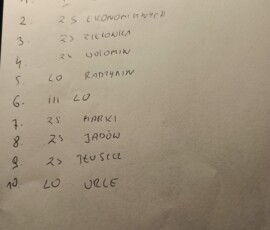 2. ZS EKONOMICZNYCH
3. ZS ZIELONKA
4 ZS WOŁOMIN
5 LO RADZYMIN
6. III LO
7. ZS MARKI
8. ZS JADÓW
9. ZS TŁUSZCZ
10. LO URLE